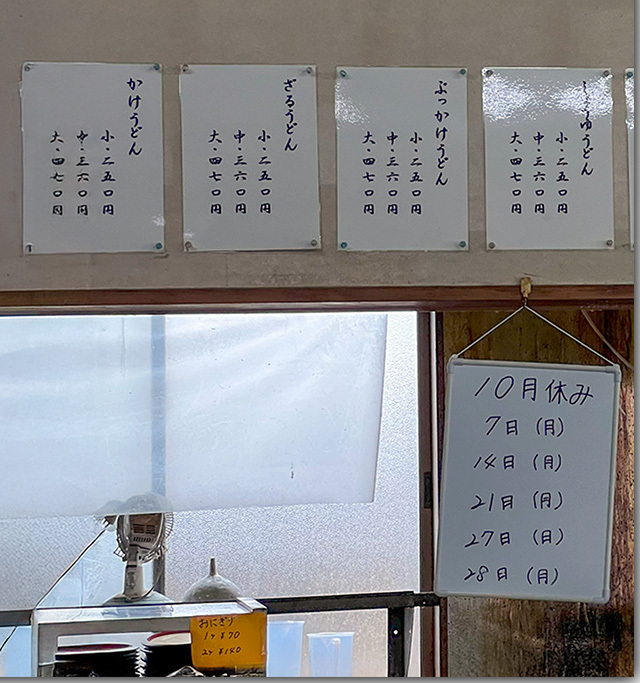 かけうどん
小・二五〇円
中・三六〇円
大・四七〇円
ざるうどん
小・二五〇円
中・三六〇円
大・四七〇円
ぶっかけうどん
小・二五〇円
中・三六〇円
大・四七〇円
しょうゆうどん
小・二五〇円
中・三六〇円
大・四七〇円
10月休み
7日(月)
14日(月)
21日(月)
27日(月)
28日(月)
おにぎり
1ケ ¥70
2ケ ¥140